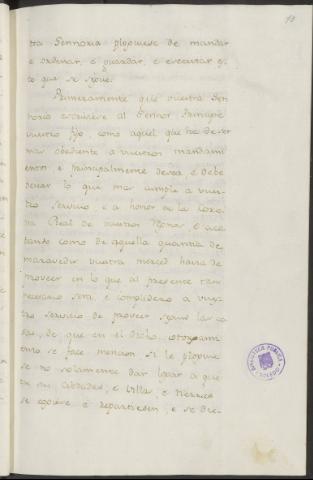 tra Sennoria plogiuese de mandar
e ordenar, e guardar, e executar es
to que se sigue.
Primeramente que vuestra Sen
noria escriviese al Sennor Principe
vuestro fijo, como aquel que ha de ser
mas obediente a vuestros mandami
entos e principalmente desea, e debe
desear lo que mas cumple a vues
tro servicio, e a honor de la Coro
na Real de vuestros Regnos e aca
tando como de aquella quantia de
maravedis vuestra merced haira de
proveer en lo que al presente tan
necesario sera, e complidero a vues
tro servicio de proveer segund las co
sas, de que en el dicho otorgami
ento se face mencion, si le ploguie
se no solamente dar lugar a que
en sus Cibdades, e Villas, e Tierras
se cogiese e repartiesen, e se die-
BIBLIOTECA PUBLICA
TOLEDO